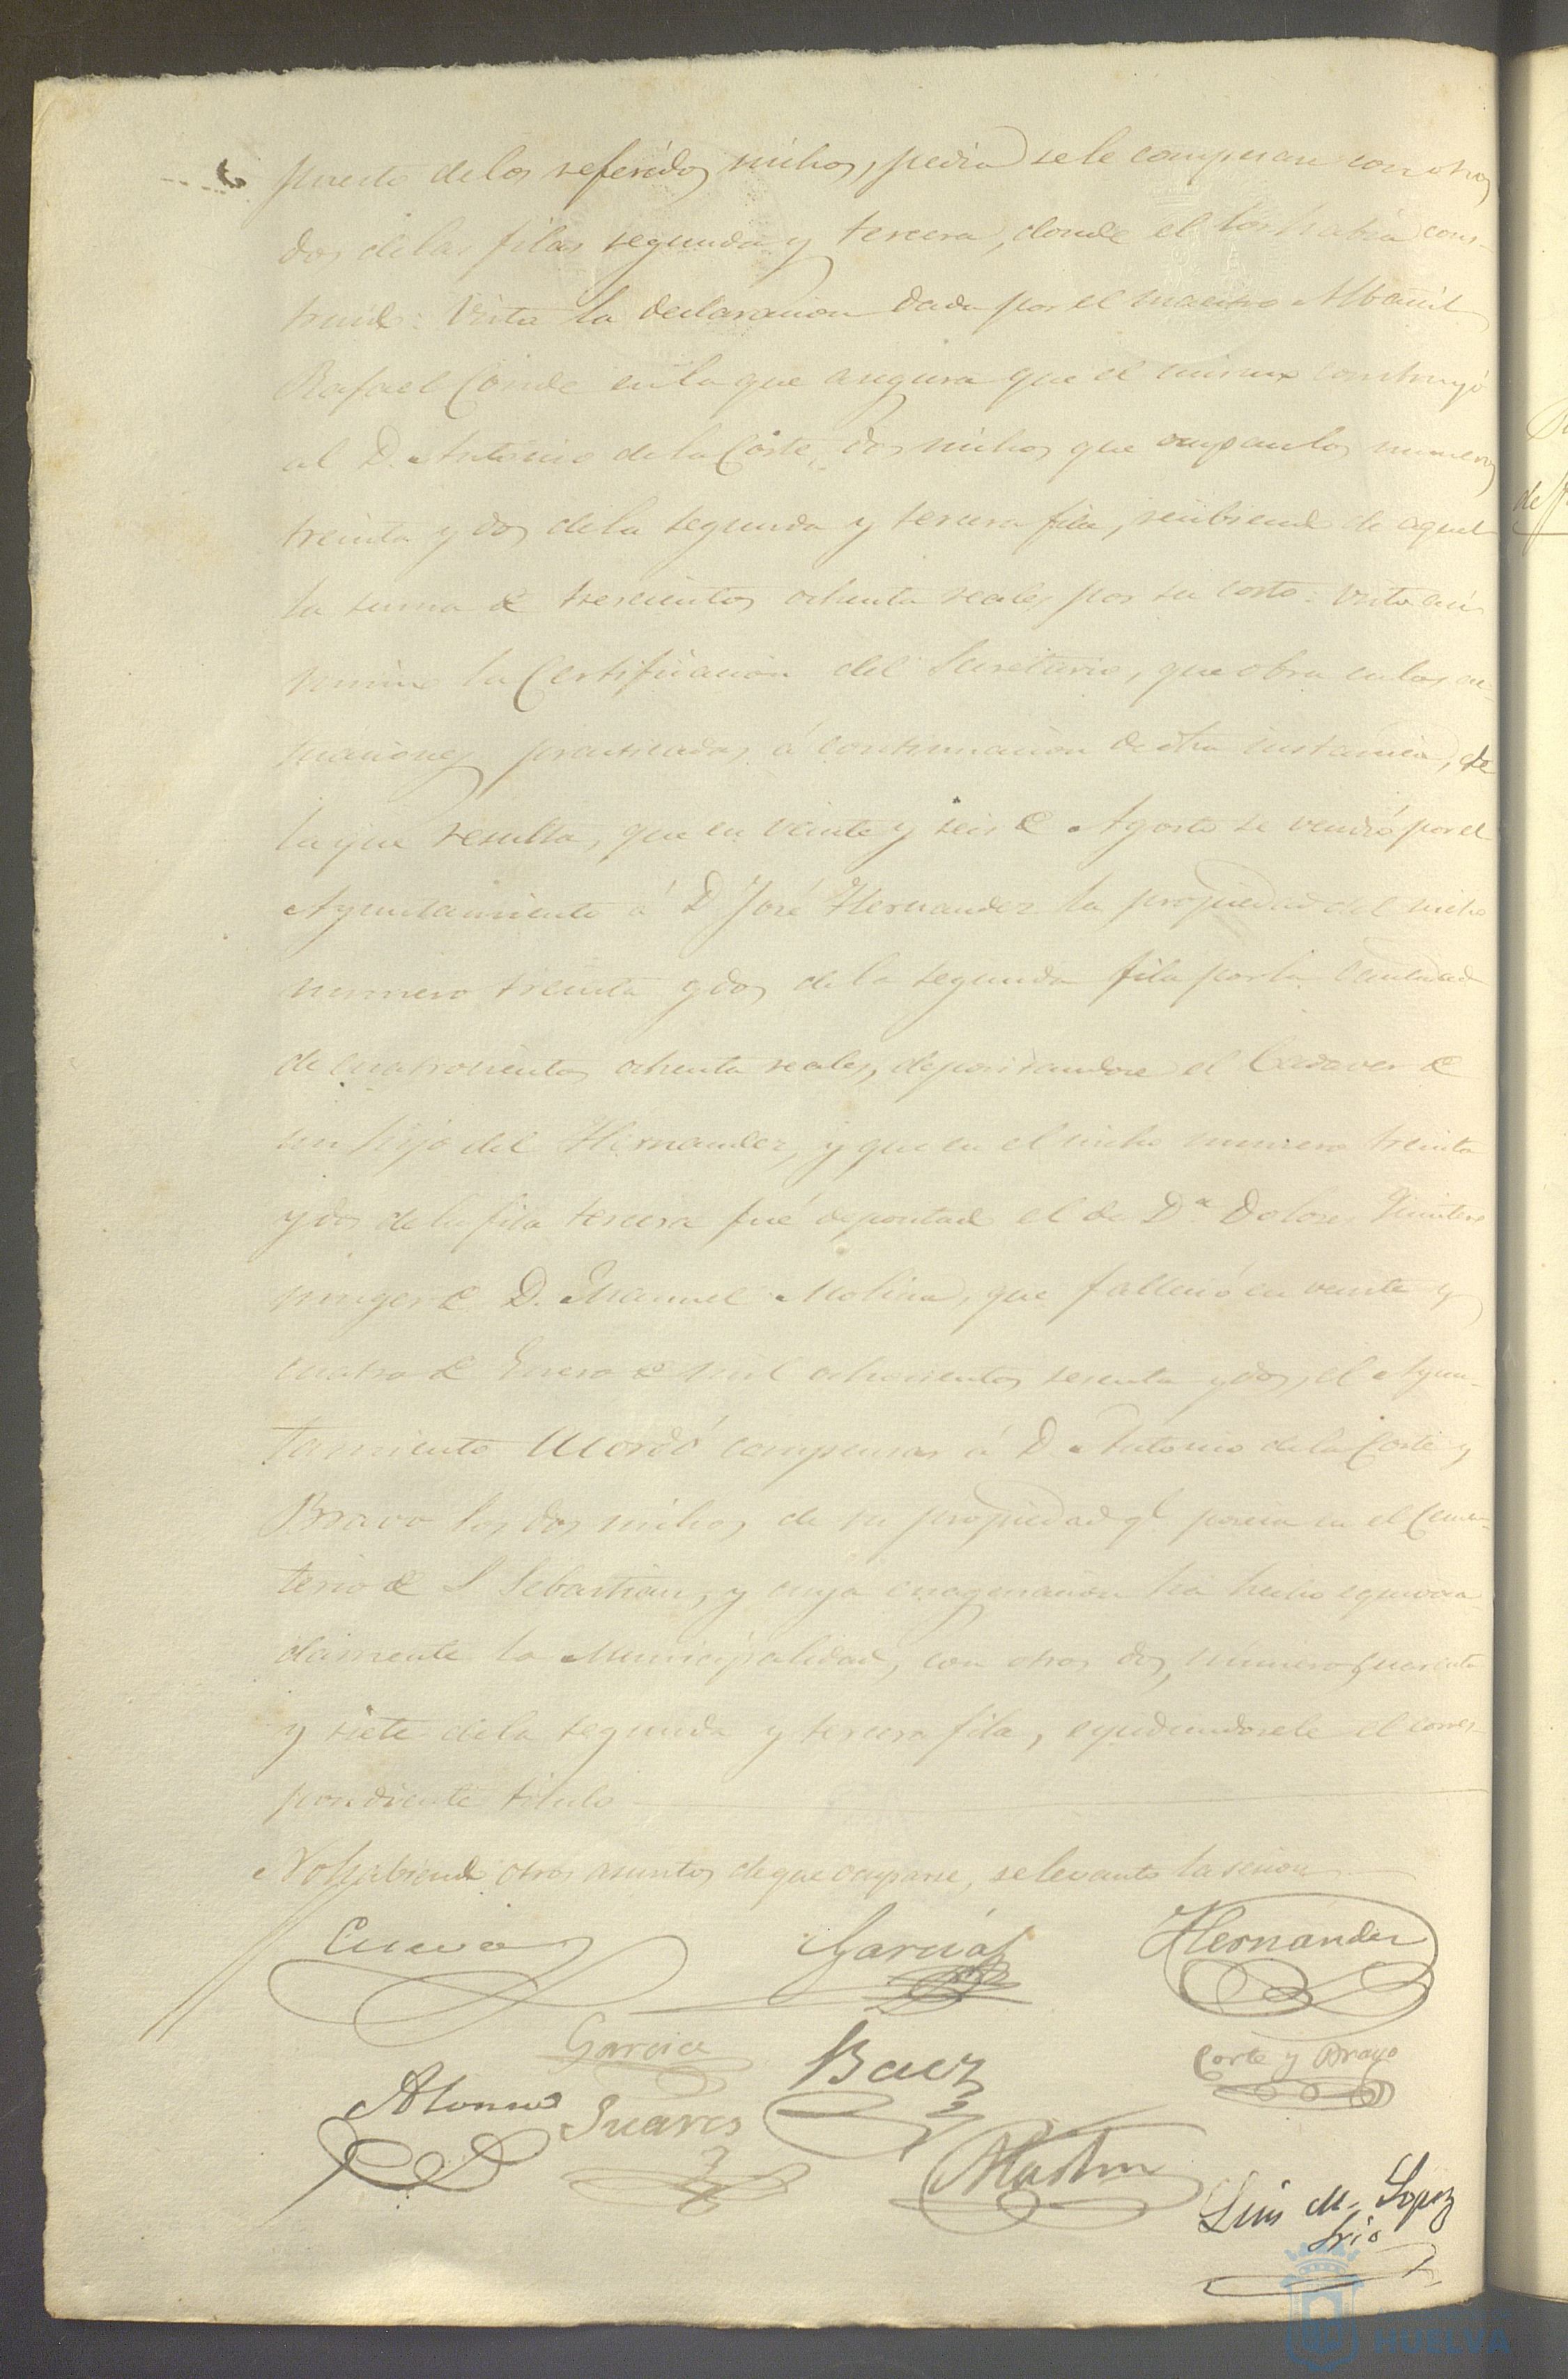 puesto de los referidos nichos, pedia se le compensase con otros
dos de las filas segunda y tercera, donde el los habia cons-
truido: Vista la declaracion dada por el maestro Albañil
Rafael Conde en la que asegura que el mismo construyó
al D. Antonio de la Corte, dos nichos que ocupan los numeros
treinta y dos de la segunda y tercera fila, recibiendo de aquel
la suma de trescientos ochenta reales por su costo: Vista asi
mismo la Certificacion del Secretario, que obra en las ac-
tuaciones practicadas á continuacion de dha instancia, de
la que resulta, que en veinte y seis de Agosto se vendió por el
Ayuntamiento á D José Hernandez la propiedad del nicho
numero treinta y dos de la segunda fila por la Cantidad
de cuatrocientos ochenta reales, depositandose el Cadaver de
un hijo del Hernandez, y que en el nicho numero treinta
y dos de la fila tercera fué depositado el de Dª Dolores Quintero
muger de D. Manuel Molina, que falleció en veinte y
cuatro de Enero de mil ochocientos sesenta y dos, el Ayun-
tamiento Acordó compensar á D. Antonio de la Corte y
Bravo los dos nichos de su propiedad q.e poseia en el Cemen-
terio de S Sebastian, y cuya enagenacion ha hecho equivoca
damente la Municipalidad, con otros dos, número cuarenta
y siete de la segunda y tercera fila, espidiendosele el corres-
pondiente titulo
No habiendo otros asuntos de que ocuparse, se levantó la sesion
Cueva García Hernández
García Baez Corte y Bravo
Alonso Suares
Martin
Luis M. Lopez
Srio
HUELVA